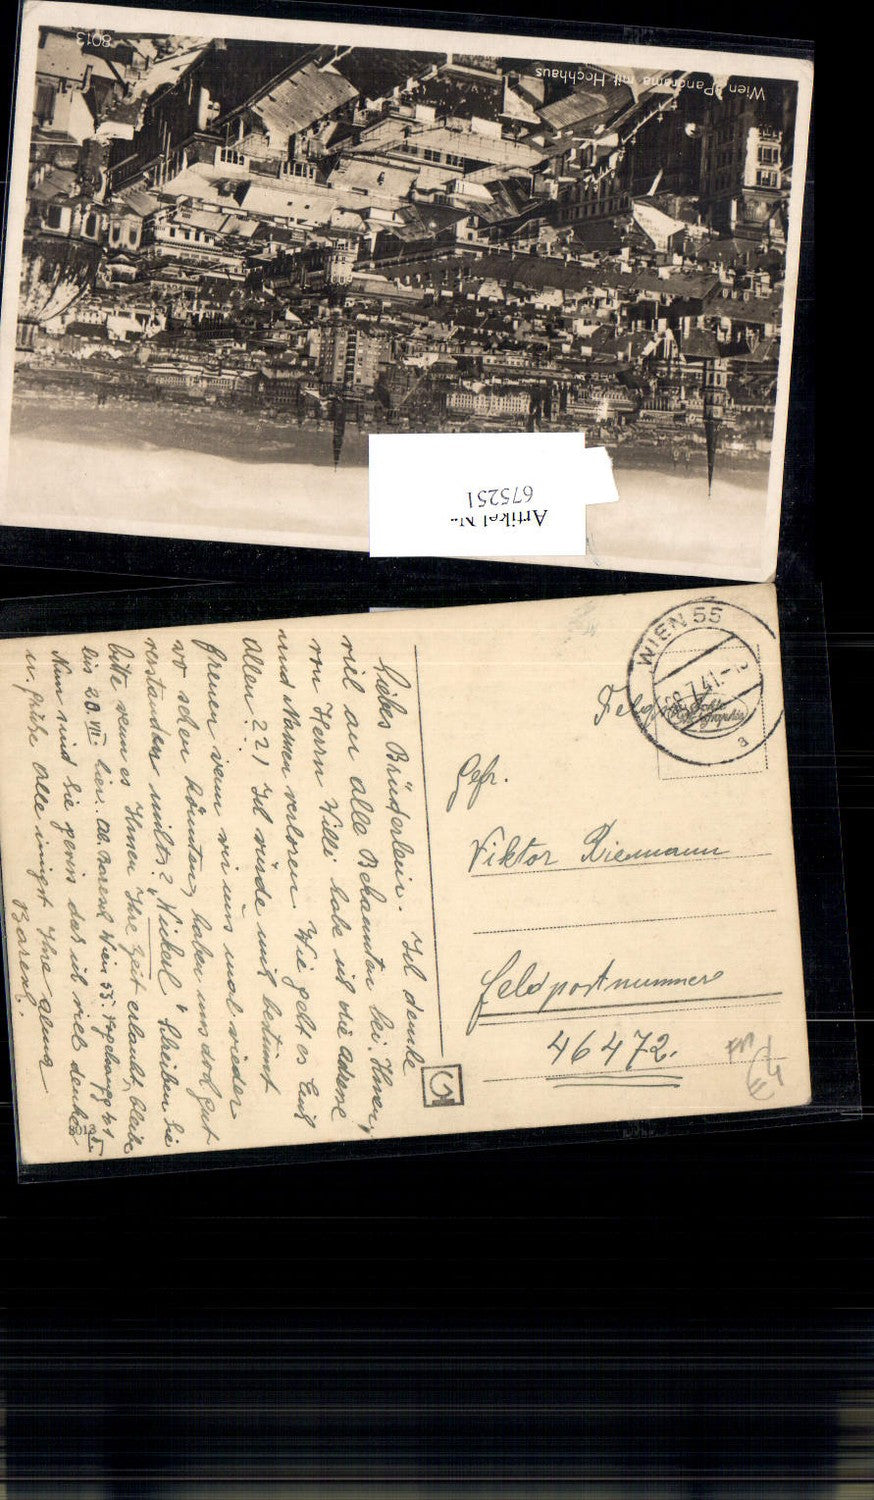 Wien. Panorama mit Hochhaus
8013
Artikel Nr.
675251
WIEN 55
28.7.41.-2
a
Echte
Photographie
Gefr.
Viktor Riemann
Feldpostnummer
46472.
Liebes Brüderlein. Ich danke
viel an alle Bekannten bei Ihnen,
von Herrn Willi habe ich die Adresse
und Namen verloren. Wie geht es Euch
allen? Ich würde mich bestimmt
freuen wenn wir uns mal wieder
wo sehen könnten, haben uns doch gut
verstanden Schreiben Sie
bitte wenn es Ihnen Ihre Zeit erlaubt, bleibe
bis 20.VIII. hier. Wien 55
Nun sind Sie gewiss das ich viel denke
u. grüße alle innigst Ihre
8013